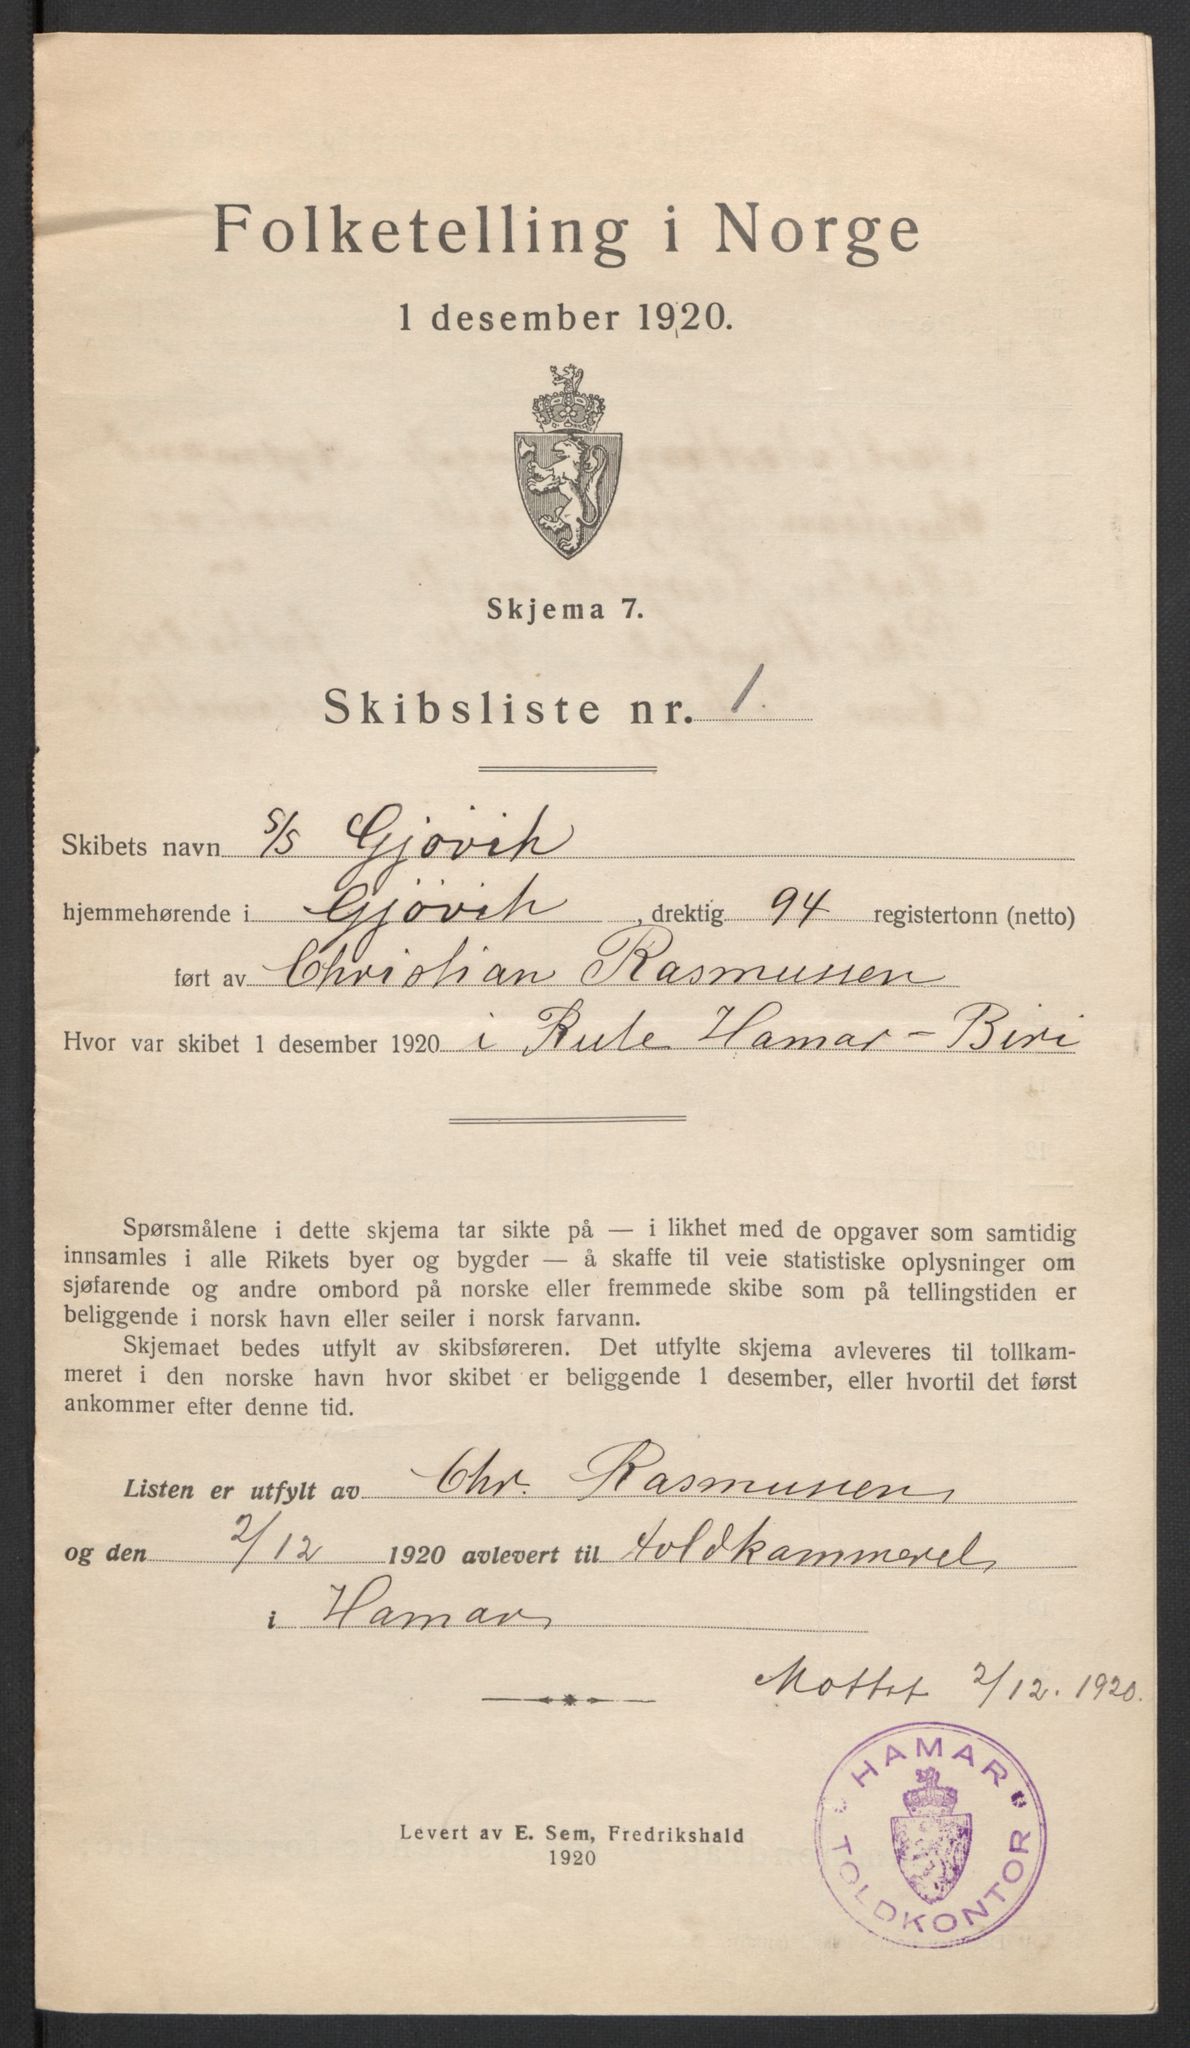 Folketelling i Norge
1 desember 1920.
Skjema 7.
Skibsliste nr. 1.
Skibets navn s/s Gjövik
hjemmehørende i Gjövik, drektig 94 registertonn (netto)
ført av Christian Rasmussen
Hvor var skibet 1 desember 1920 i Rute Hamar - Biri
Spørsmålene i dette skjema tar sikte på — i likhet med de opgaver som samtidig
innsamles i alle Rikets byer og bygder — å skaffe til veie statistiske oplysninger om
sjøfarende og andre ombord på norske eller fremmede skibe som på tellingstiden er
beliggende i norsk havn eller seiler i norsk farvann.
Skjemaet bedes utfylt av skibsføreren. Det utfylte skjema avleveres til tollkam-
meret i den norske havn hvor skibet er beliggende 1 desember, eller hvortil det først
ankommer efter denne tid.
Listen er utfylt av Chr. Rasmussen
og den 2/12 1920 avlevert til toldkammeret
i Hamar
Mottat 2/12. 1920.
HAMAR TOLDKONTOR
Levert av E. Sem, Fredrikshald
1920